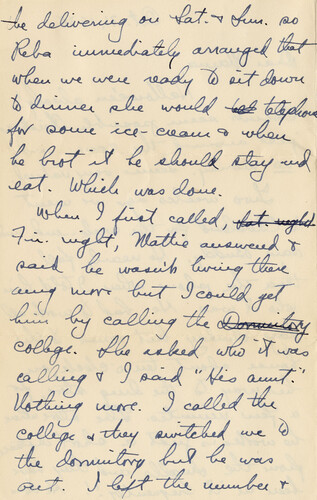 be delivering on Sat. & Sun. so
Reba immediately arranged that
when we were ready to sit down
to dinner she would telephone
for some ice-cream & when
he brot it he should stay and
eat. Which was done.
When I first called, Sat. night
Fri. night, Mattie answered &
said he wasn't living there
any more but I could get
him by calling the Dormitory
college. She asked who it was
calling & I said "His aunt".
Nothing more. I called the
college & they switched me to
the dormitory but he was
out. I left the number &